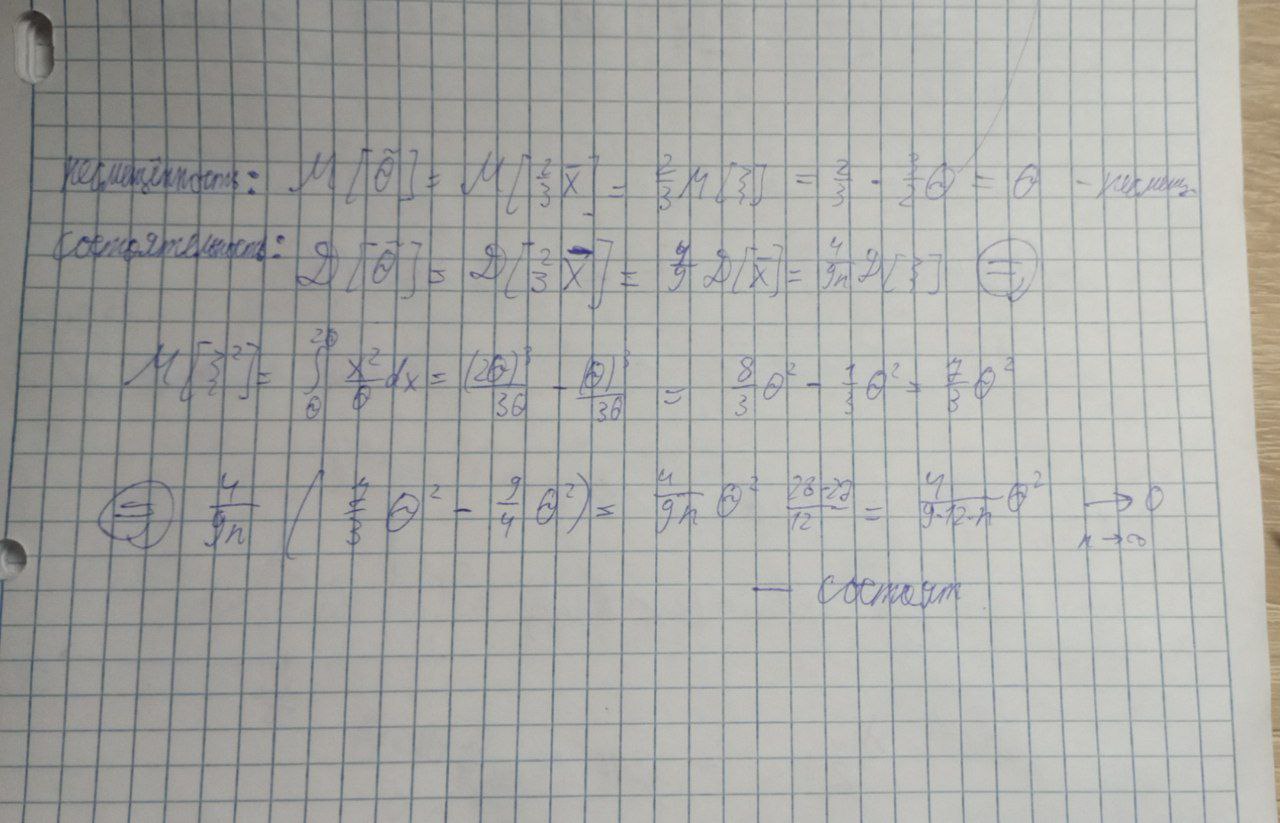 несмещённость: M[θ̃] = M[2/3 x̄] = 2/3 M[ξ] = 2/3 · 3/2 θ = θ - несмещ
состоятельность: D[θ̃] = D[2/3 x̄] = 4/9 D[x̄] = 4/9n D[ξ] =
M[ξ²] = ∫_θ^2θ x²/θ dx = (2θ)³/3θ - (θ)³/3θ = 8/3 θ² - 1/3 θ² = 7/3 θ²
= 4/9n (7/3 θ² - 9/4 θ²) = 4/9n θ² 28-27/12 = 4/9·12·n θ² → 0
n→∞
— состоят